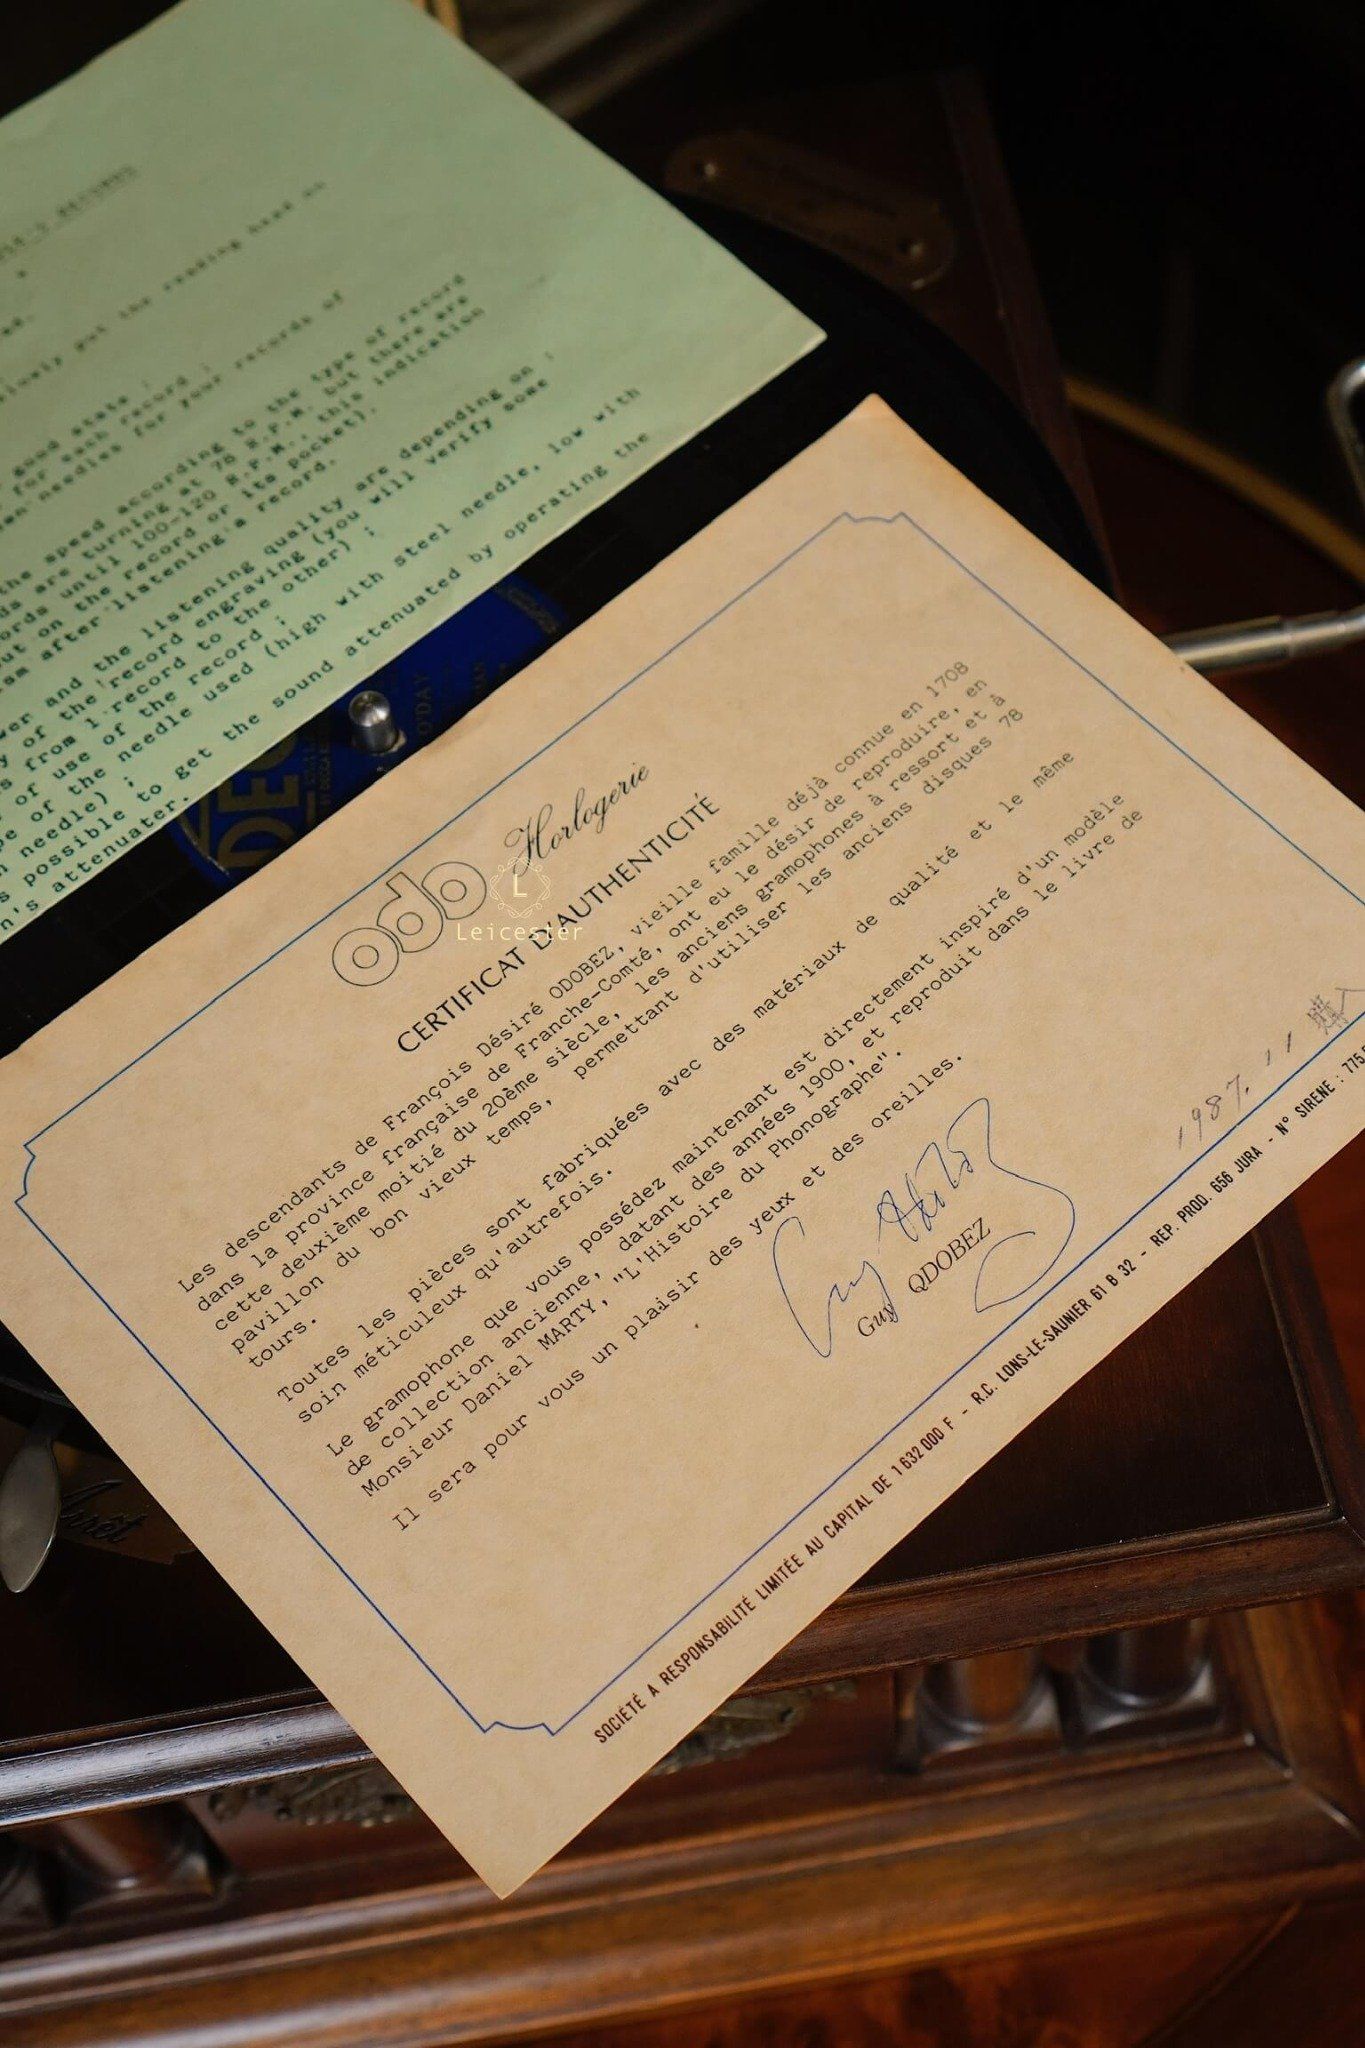 good state ;
for each record ;
needles for your records of
the speed according to the type of record
are turning at 78 R.P.M. but there are
until 100-120 R.P.M., this indication
on the record or its pocket).
after listening a record.
and the listening quality are depending on
of the record engraving (you will verify some
from 1 record to the other) ;
of use of the record ;
of the needle used (high with steel needle, low with
needle) ;
possible to get the sound attenuated by operating the
attenuater.
O'DAY
odo Horlogerie
L
Leicester
CERTIFICAT D'AUTHENTICITÉ
Les descendants de François Désiré ODOBEZ, vieille famille déjà connue en 1708
dans la province française de Franche-Comté, ont eu le désir de reproduire, en
cette deuxième moitié du 20ème siècle, les anciens gramophones à ressort et à
pavillon du bon vieux temps, permettant d'utiliser les anciens disques 78
tours.
Toutes les pièces sont fabriquées avec des matériaux de qualité et le même
soin méticuleux qu'autrefois.
Le gramophone que vous possédez maintenant est directement inspiré d'un modèle
de collection ancienne, datant des années 1900, et reproduit dans le livre de
Monsieur Daniel MARTY, "L'Histoire du Phonographe".
Il sera pour vous un plaisir des yeux et des oreilles.
Guy ODOBEZ
1987. 11 購入
SOCIÉTÉ A RESPONSABILITÉ LIMITÉE AU CAPITAL DE 1 632 000 F - R.C. LONS-LE-SAUNIER 61 B 32 - REP. PROD. 656 JURA - N° SIRENE : 775
Arrêt